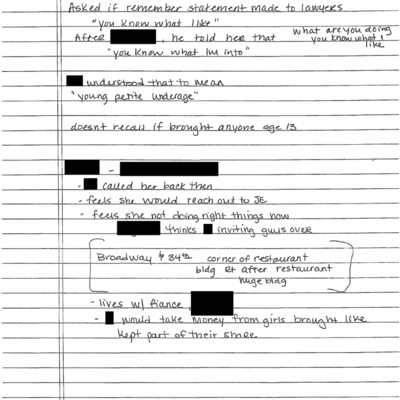 Asked if remember statement made to lawyers
"you know what like"
After , he told her that what are you doing
you know what I
like
"you know what Im into"
understood that to mean
"young petite underage"
doesnt recall if brought anyone age 13
-
- called her back then
- feels she would reach out to JE
- feels she not doing right things now
thinks inviting guys over
Broadway & 34th corner of restaurant
bldg Rt after restaurant
huge bldg
- lives w/ fiance
- would take money from girls brought like
kept part of their share